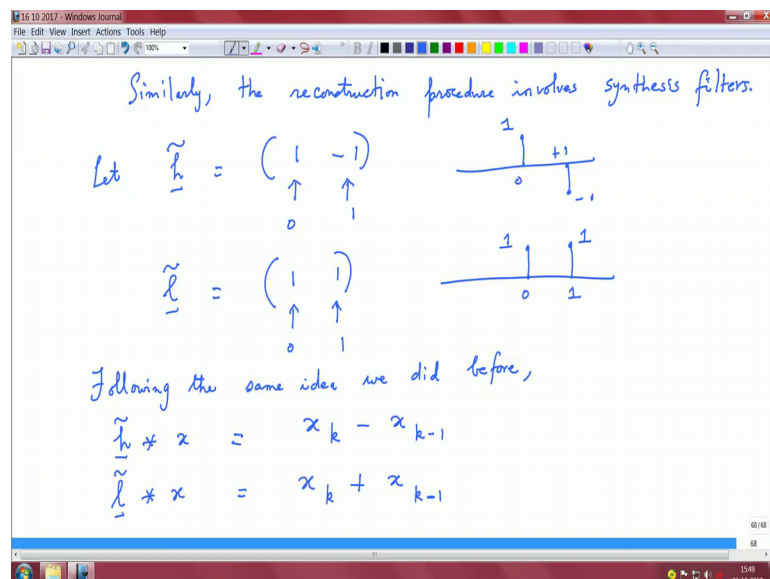 16 10 2017 - Windows Journal
File Edit View Insert Actions Tools Help
100%
Similarly, the reconstruction procedure involves synthesis filters.
Let h̃ = ( 1 -1 )
↑ ↑
0 1
1 +1
0 -1
l̃ = ( 1 1 )
↑ ↑
0 1
1 1
0 1
Following the same idea we did before,
h̃ * x = x_k - x_{k-1}
l̃ * x = x_k + x_{k-1}
68/68
68
15:49